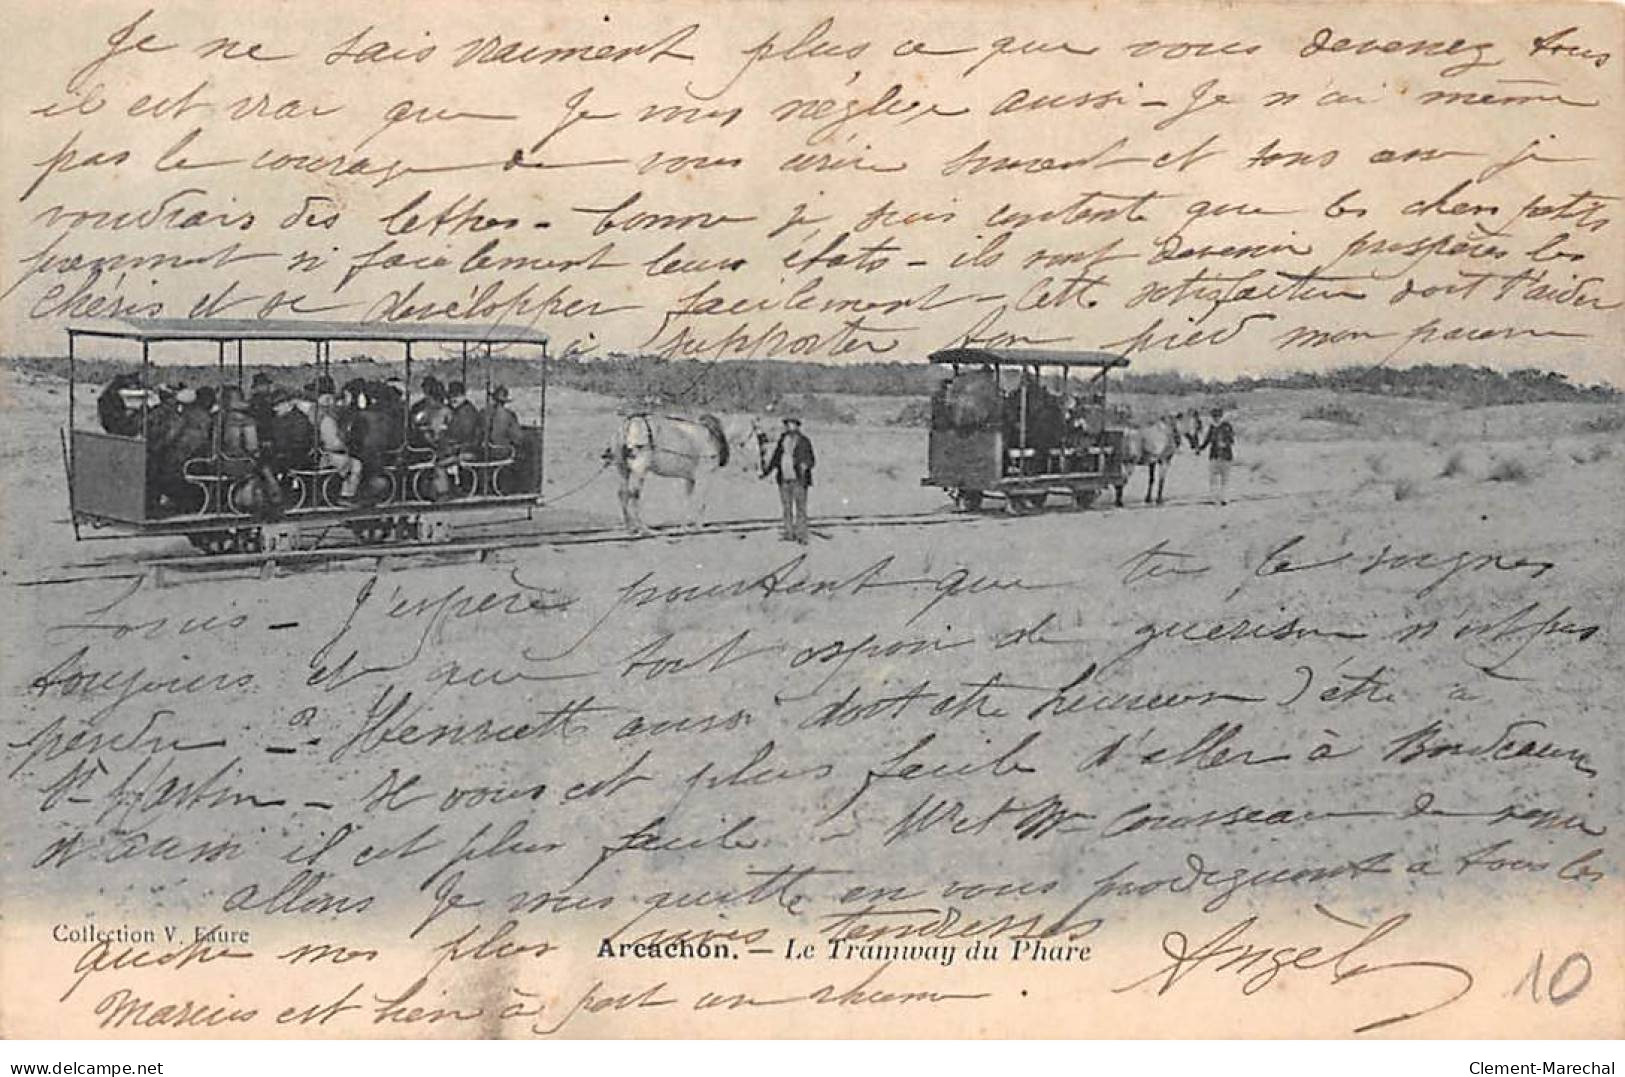 Je ne sais vraiment plus ce que vous devenez tous
il est vrai que Je vous néglige aussi - Je n'ai même
pas le courage de vous écrire souvent et tous que je
voudrais des lettres - bonne je suis contente que les chers petits
prennent si facilement leurs états - ils vont devenir prospères les
chéris et se développer facilement - cette satisfaction doit t'aider
à supporter ton pied mon pauvre
Louis - J'espère pourtant que tu le soignes
toujours et que tout espoir de guérison n'est pas
perdu -? Henriette aussi doit être heureuse d'être à
St Martin - Il vous est plus facile d'aller à Bordeaux
aussi il est plus facile à Mr et Mme Cousseau de venir
allons Je vous quitte en vous prodiguant à tous les
Collection V. Faure
gauche mes plus vives tendresses
Arcachon. - Le Tramway du Phare
Angèle
10
Marcius est bien à part un rhume.
delcampe.net
Clement-Marechal